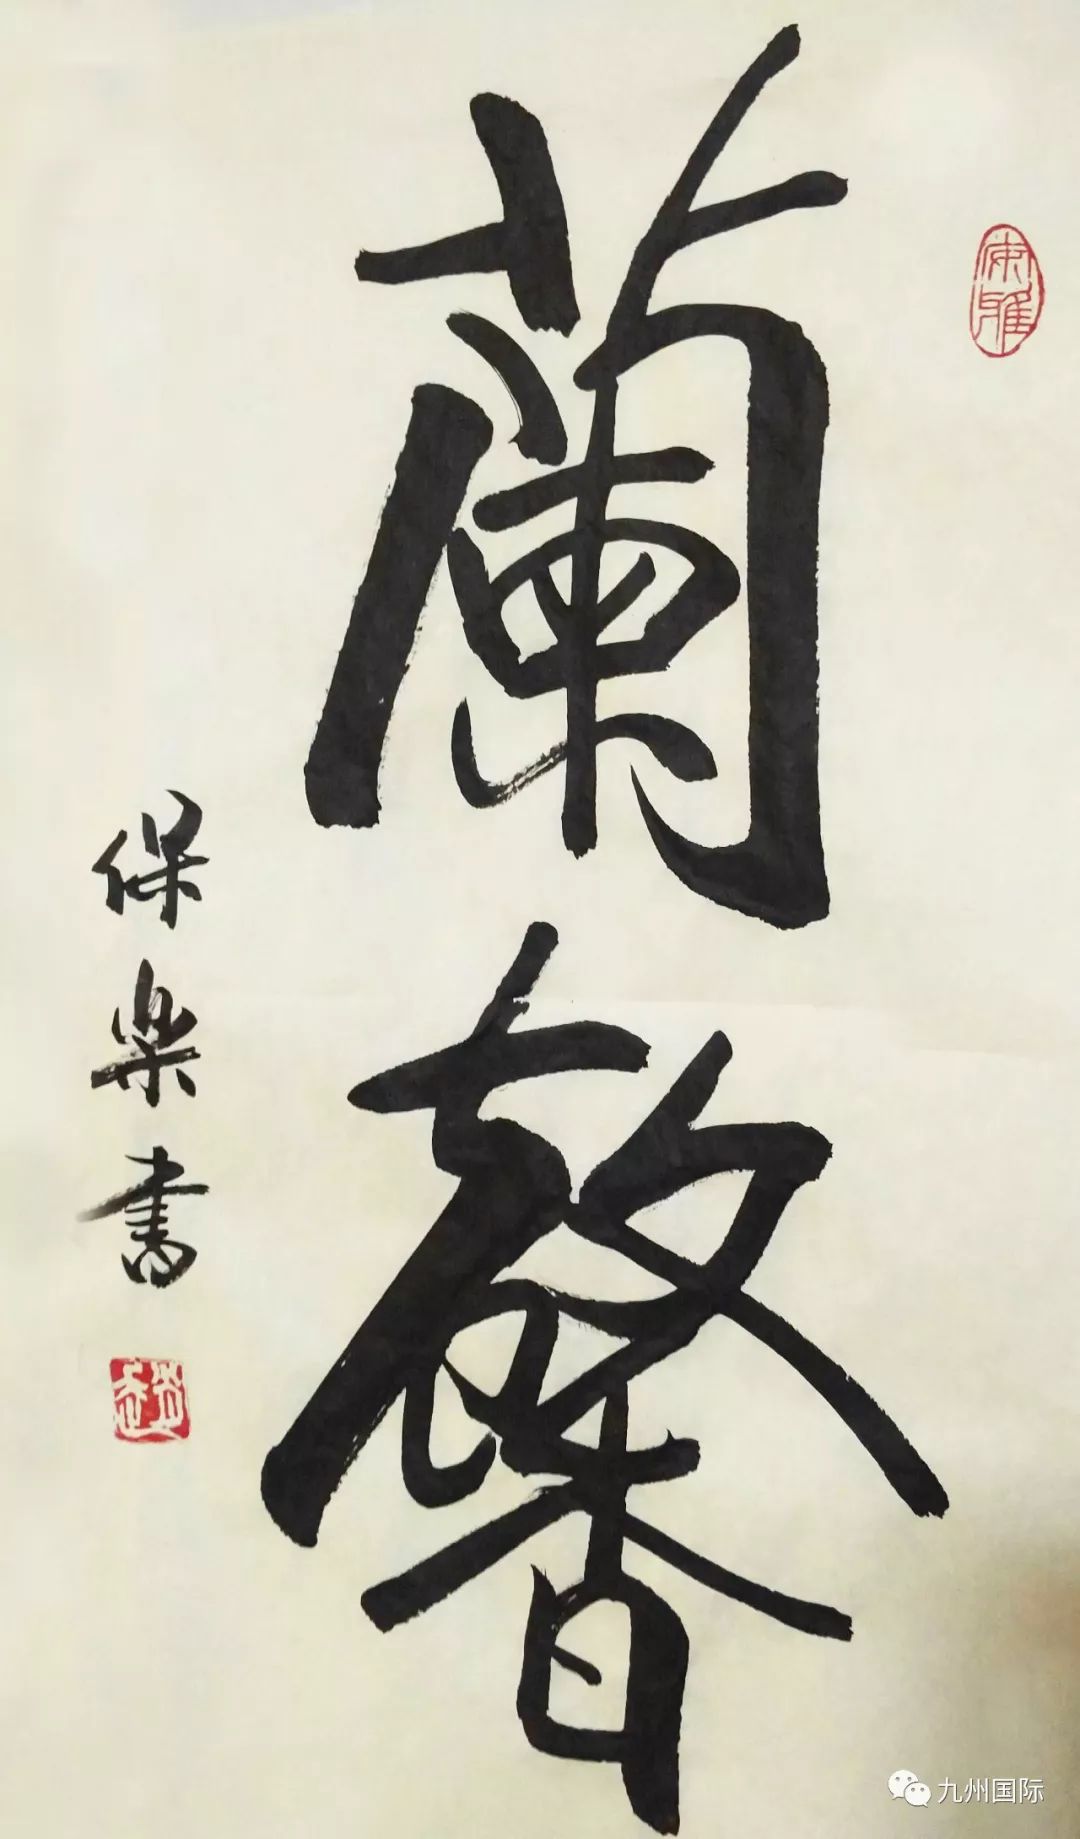 蘭馨
保樂書
九州国际